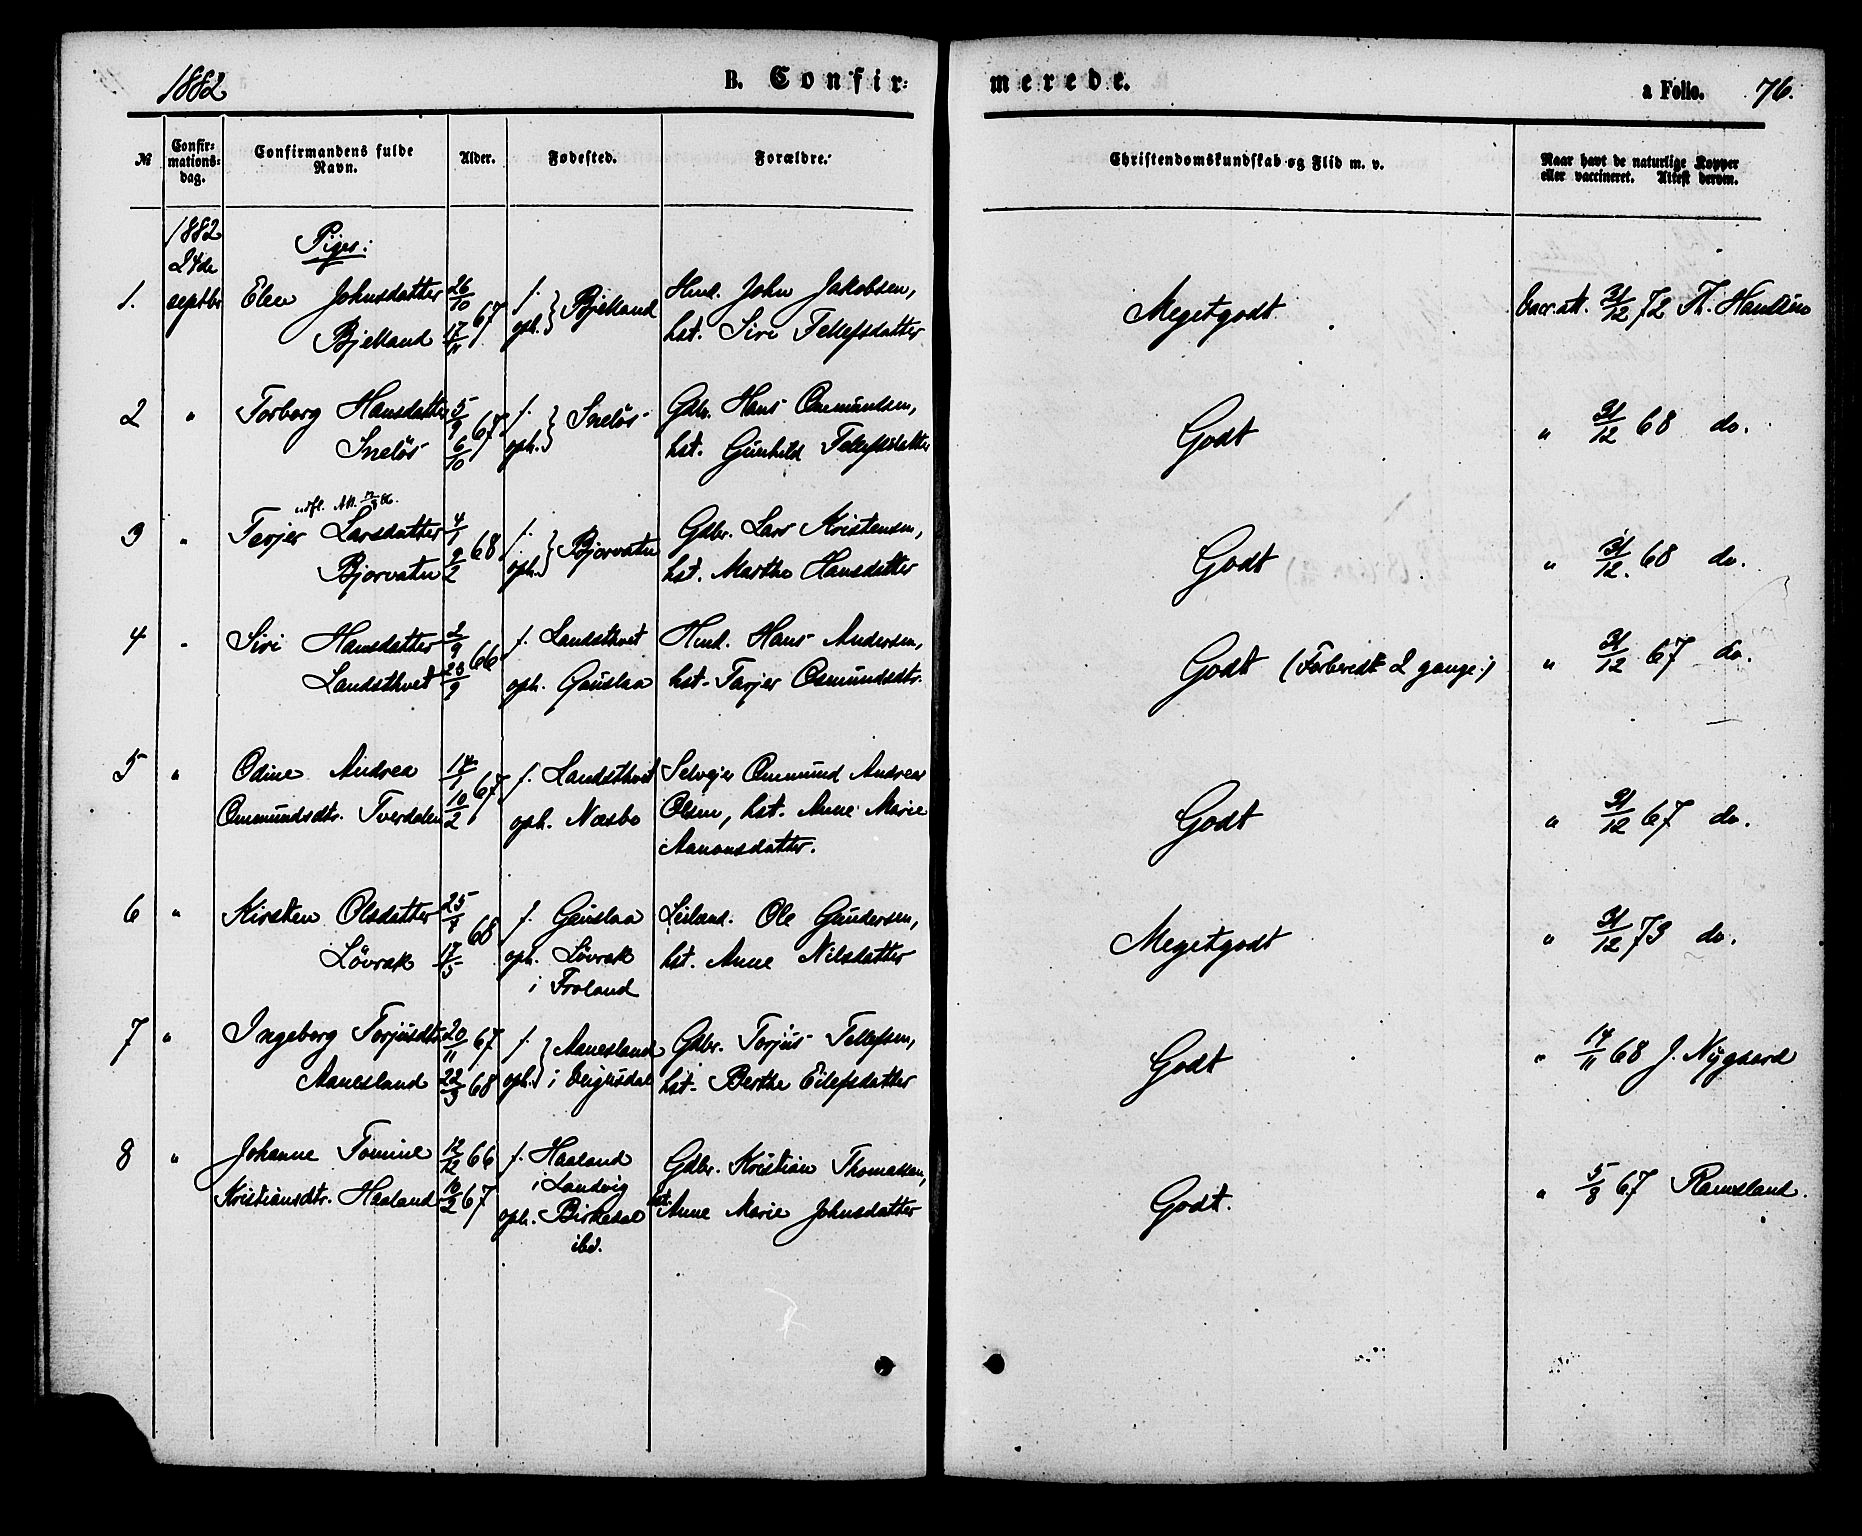 1882
B. Confir-
merede.
a Folio. 76.
№
Confir-
mations-
dag.
Confirmandens fulde
Navn.
Alder.
Fødested.
Forældre.
Christendomskundskab og Flid m. v.
Naar havt de naturlige Kopper
eller vaccineret. Attest derom.
1882
24de
septbr
Piger:
1. Elen Johnsdatter
Bjelland
26/10 67
17/11
f.
oph. } Bjelland
Hmd. John Jakobsen,
hst. Siri Tellefsdatter
Megetgodt
vacc. att. 31/12 72 Th. Hansen
2 " Torborg Hansdatter
Sneløs
5/9 67
6/10
f.
oph. } Sneløs
Gbr. Hans Omundsen,
hst. Gunhild Tellefsdatter
Godt
" 31/12 68 do.
3 " Terjer Larsdatter
Bjorvatn
4/1 68
9/2
f.
oph. } Bjorvatn
Gdbr. Lars Kristensen,
hst. Marthe Hansdatter
Godt
" 31/12 68 do.
4 " Siri Hansdatter
Landsthvet
2/9 66
23/9
f. Landsthvet
oph. Gauslaa
Hmd. Hans Andersen,
hst. Tarjer Osmundsdtr.
Godt (Forberedt 2 gange:)
" 31/12 67 do.
5 " Odine Andrea
Ommundsdtr. Tverdalen
14/1 67
10/2
f. Landsthvet
oph. Næsbo
Selvejer Ommund Andreas
Olsen, hst. Anne Marie
Aanonsdatter.
Godt
" 31/12 67 do.
6 " Kirsten Olsdatter
Løvrak
68
17/5
f. Gauslaa
oph. Løvrak
i Froland
Leilænd. Ole Gundersen,
hst. Anne Nilsdatter
Megetgodt
" 31/12 73 do.
7 " Ingeborg Torjusdtr.
Aanesland
20/11 67
22/3 68
f.
oph. } Aanesland
i Vegusdal
Gdbr. Torjus Tellefsen,
hst. Berthe Eilefsdatter
Godt
" 14/11 68 J. Nygaard
8 " Johanne Tomine
Kristiansdtr. Haaland
12/12 66
10/2 67
f. Haaland
i Landvig
oph. Birkedal
ibd.
Gdbr. Kristian Thomassen,
hst. Anne Marie Johnsdatter
Godt.
" 5/8 67 Ramsland.